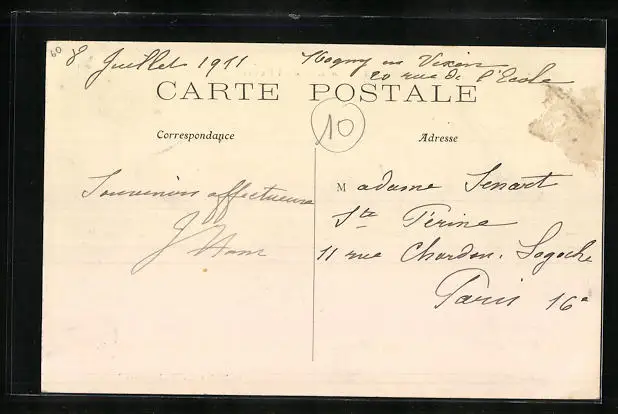 60
8 Juillet 1911
Magny en Vexin
20 rue de l'Ecole
CARTE POSTALE
10
Correspondance
Adresse
Souvenirs affectueux
Madame Senart
Ste Périne
11 rue Chardon. Lagache
Paris 16e